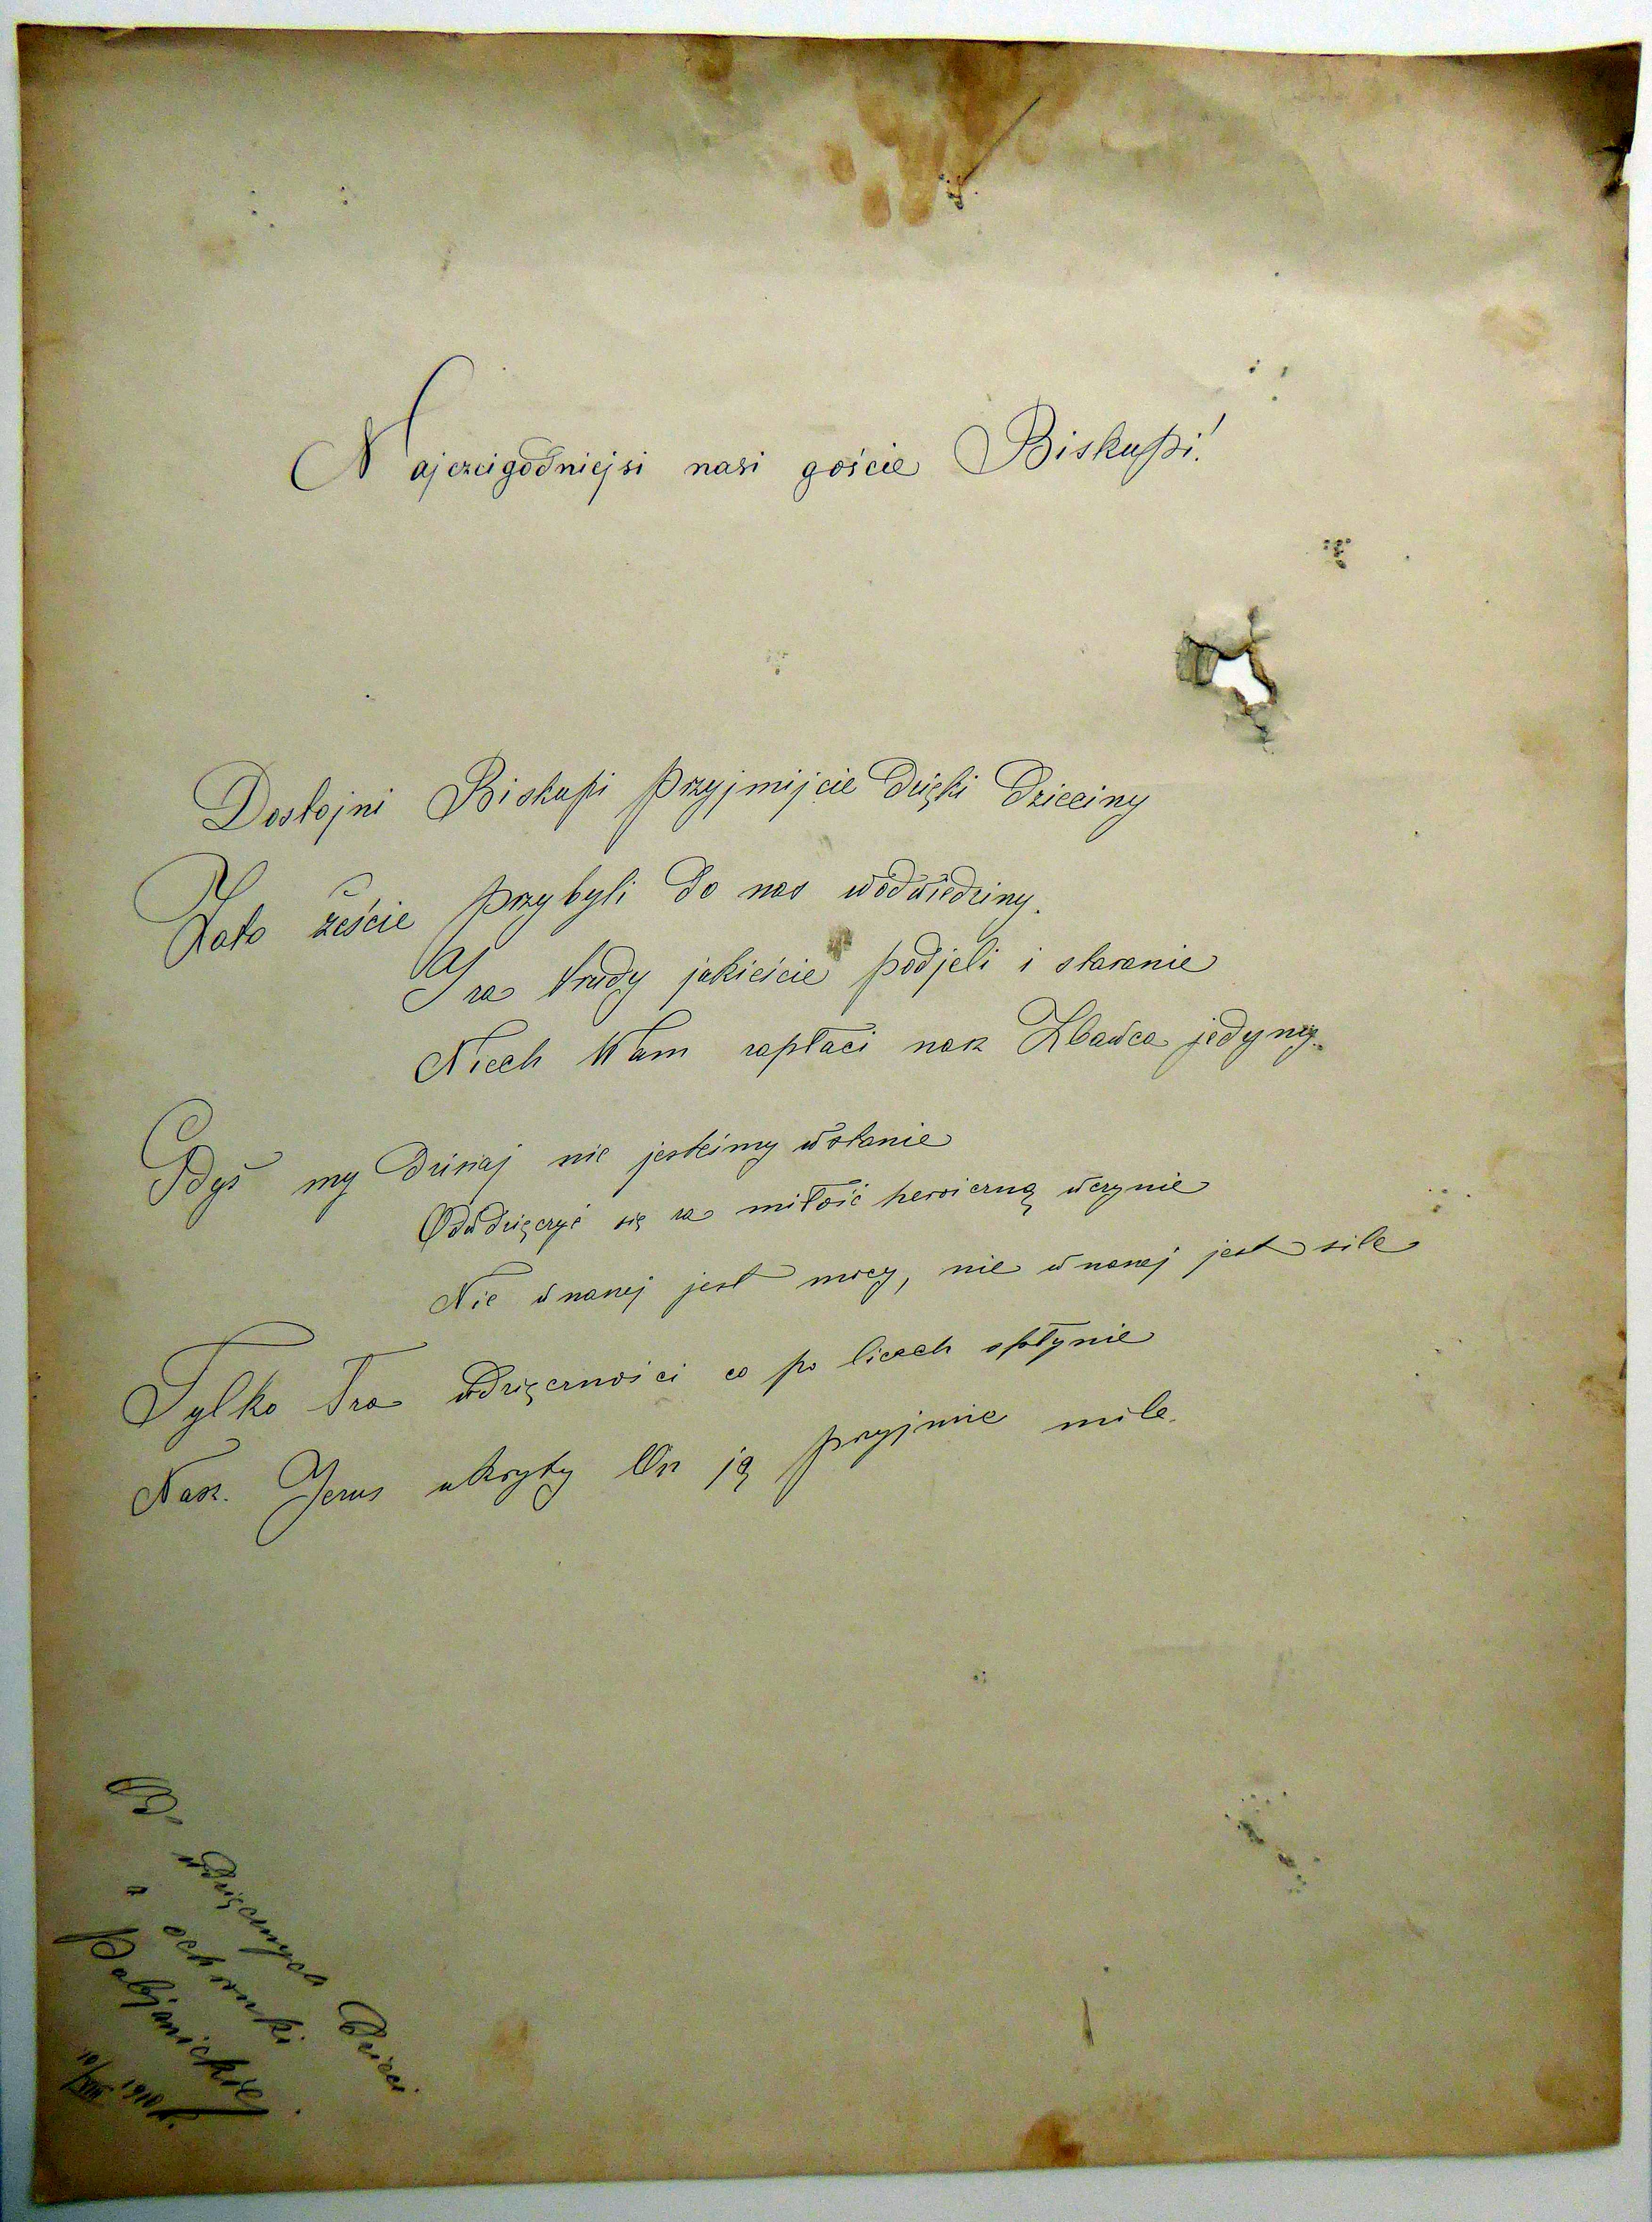 Najczcigodniejsi nasi goście Biskupi!
Dostojni Biskupi przyjmijcie dzięki dzieciny
Zato żeście przybyli do nas wodwiedziny.
I za trudy jakieście podjeli i staranie
Niech Wam zapłaci nasz Zbawca jedyny.
Gdyż my dzisiaj nie jesteśmy wstanie
Odwdzięczyć się za miłość heroiczną wczynie
Nie wnaszej jest mocy, nie wnaszej jest sile
Tylko łza wdzięczności co po licach spłynie
Nasz. Jezus ukryty On ją przyjmie mile.
Od wdzięcznych Dzieci
z ochronki
Pabjanickiej.
10/VIII 1910 r.